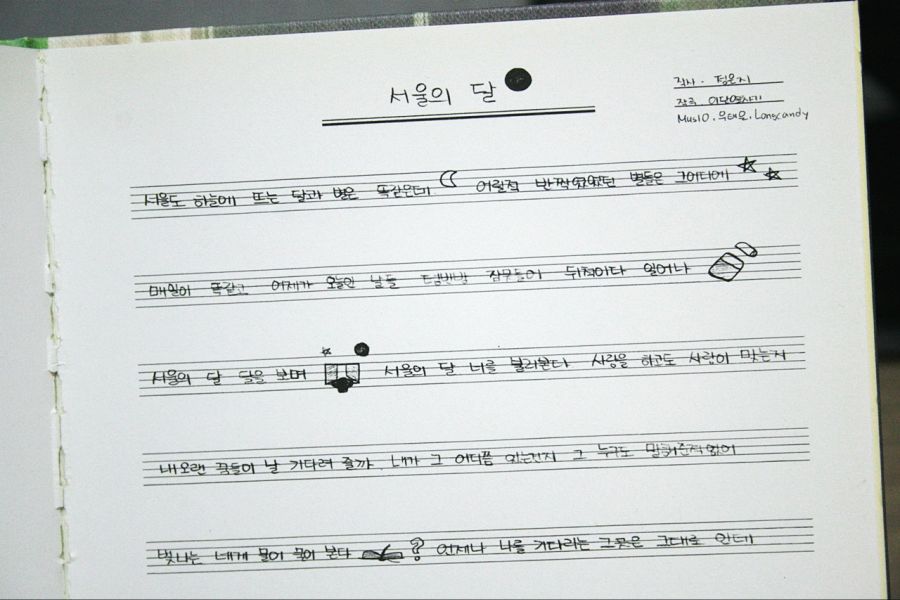 서울의 달
작사. 정은지
작곡. 이단옆차기
MusIQ. 우태오. Longcandy
서울도 하늘에 뜨는 달과 별은 똑같은데 어릴적 반짝였었던 별들은 그어디에
매일이 똑같고 어제가 오늘인 날들 텅빈방 잠못들어 뒤척이다 일어나
서울의 달 달을 보며 서울의 달 너를 불러본다 사랑을 하고도 사랑이 맞는지
내오랜 꿈들이 날 기다려 줄까 내가 그 어디쯤 있는건지 그 누구도 말해준적없어
빛나는 네게 물어 물어 본다 ? 언제나 나를 기다리는 그곳은 그대로 인데